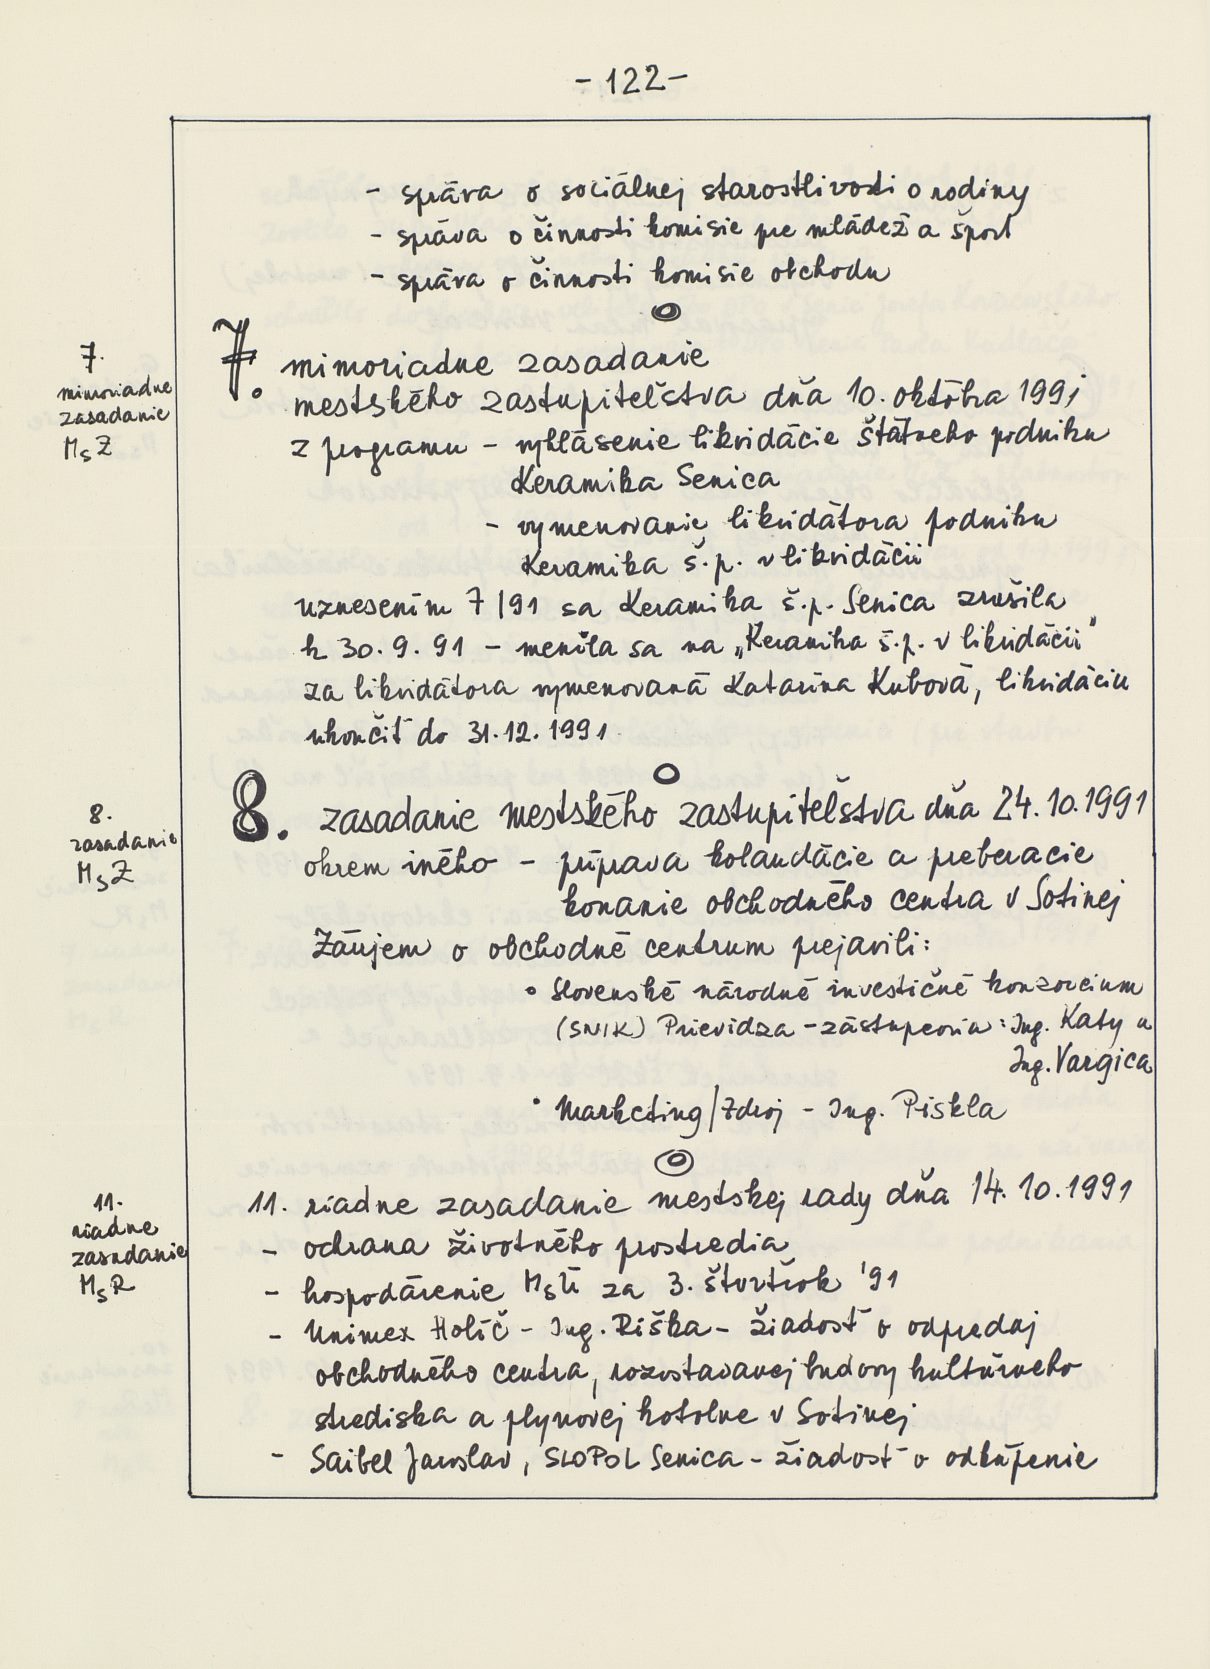 - 122 -
- správa o sociálnej starostlivosti o rodiny
- správa o činnosti komisie pre mládež a šport
- správa o činnosti komisie obchodu
7.
mimoriadne
zasadanie
MsZ
7. mimoriadne zasadanie
mestského zastupiteľstva dňa 10. októbra 1991
z programu - vyhlásenie likvidácie štátneho podniku
Keramika Senica
- vymenovanie likvidátora podniku
Keramika š.p. v likvidácii
uznesením 7/91 sa Keramika š.p. Senica zrušila
k 30. 9. 91 - menila sa na „Keramika š.p. v likvidácii"
za likvidátora vymenovaná Katarína Kubová, likvidáciu
ukončiť do 31.12.1991
8.
zasadanie
MsZ
8. zasadanie mestského zastupiteľstva dňa 24.10.1991
okrem iného - príprava kolaudácie a preberacie
konanie obchodného centra v Sotinej
Záujem o obchodné centrum prejavili:
• Slovenské národné investičné konzorcium
(SNIK) Prievidza - zástupcovia: Ing. Katy a
Ing. Vargica
• Marketing/Zdroj - Ing. Piskla
11.
riadne
zasadanie
MsR
11. riadne zasadanie mestskej rady dňa 14.10.1991
- ochrana životného prostredia
- hospodárenie MsÚ za 3. štvrťrok '91
- Unimex Holíč - Ing. Riška - žiadosť o odpredaj
obchodného centra, rozostavanej budovy kultúrneho
strediska a plynovej kotolne v Sotinej
- Saibel Jaroslav, SLOPOL Senica - žiadosť o odkúpenie